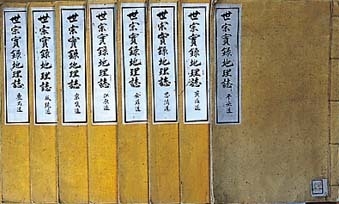 世宗實錄地理誌
平安道
世宗實錄地理誌
黃海道
世宗實錄地理誌
忠清道
世宗實錄地理誌
全羅道
世宗實錄地理誌
江原道
世宗實錄地理誌
道
世宗實錄地理誌
道
世宗實錄地理誌
道